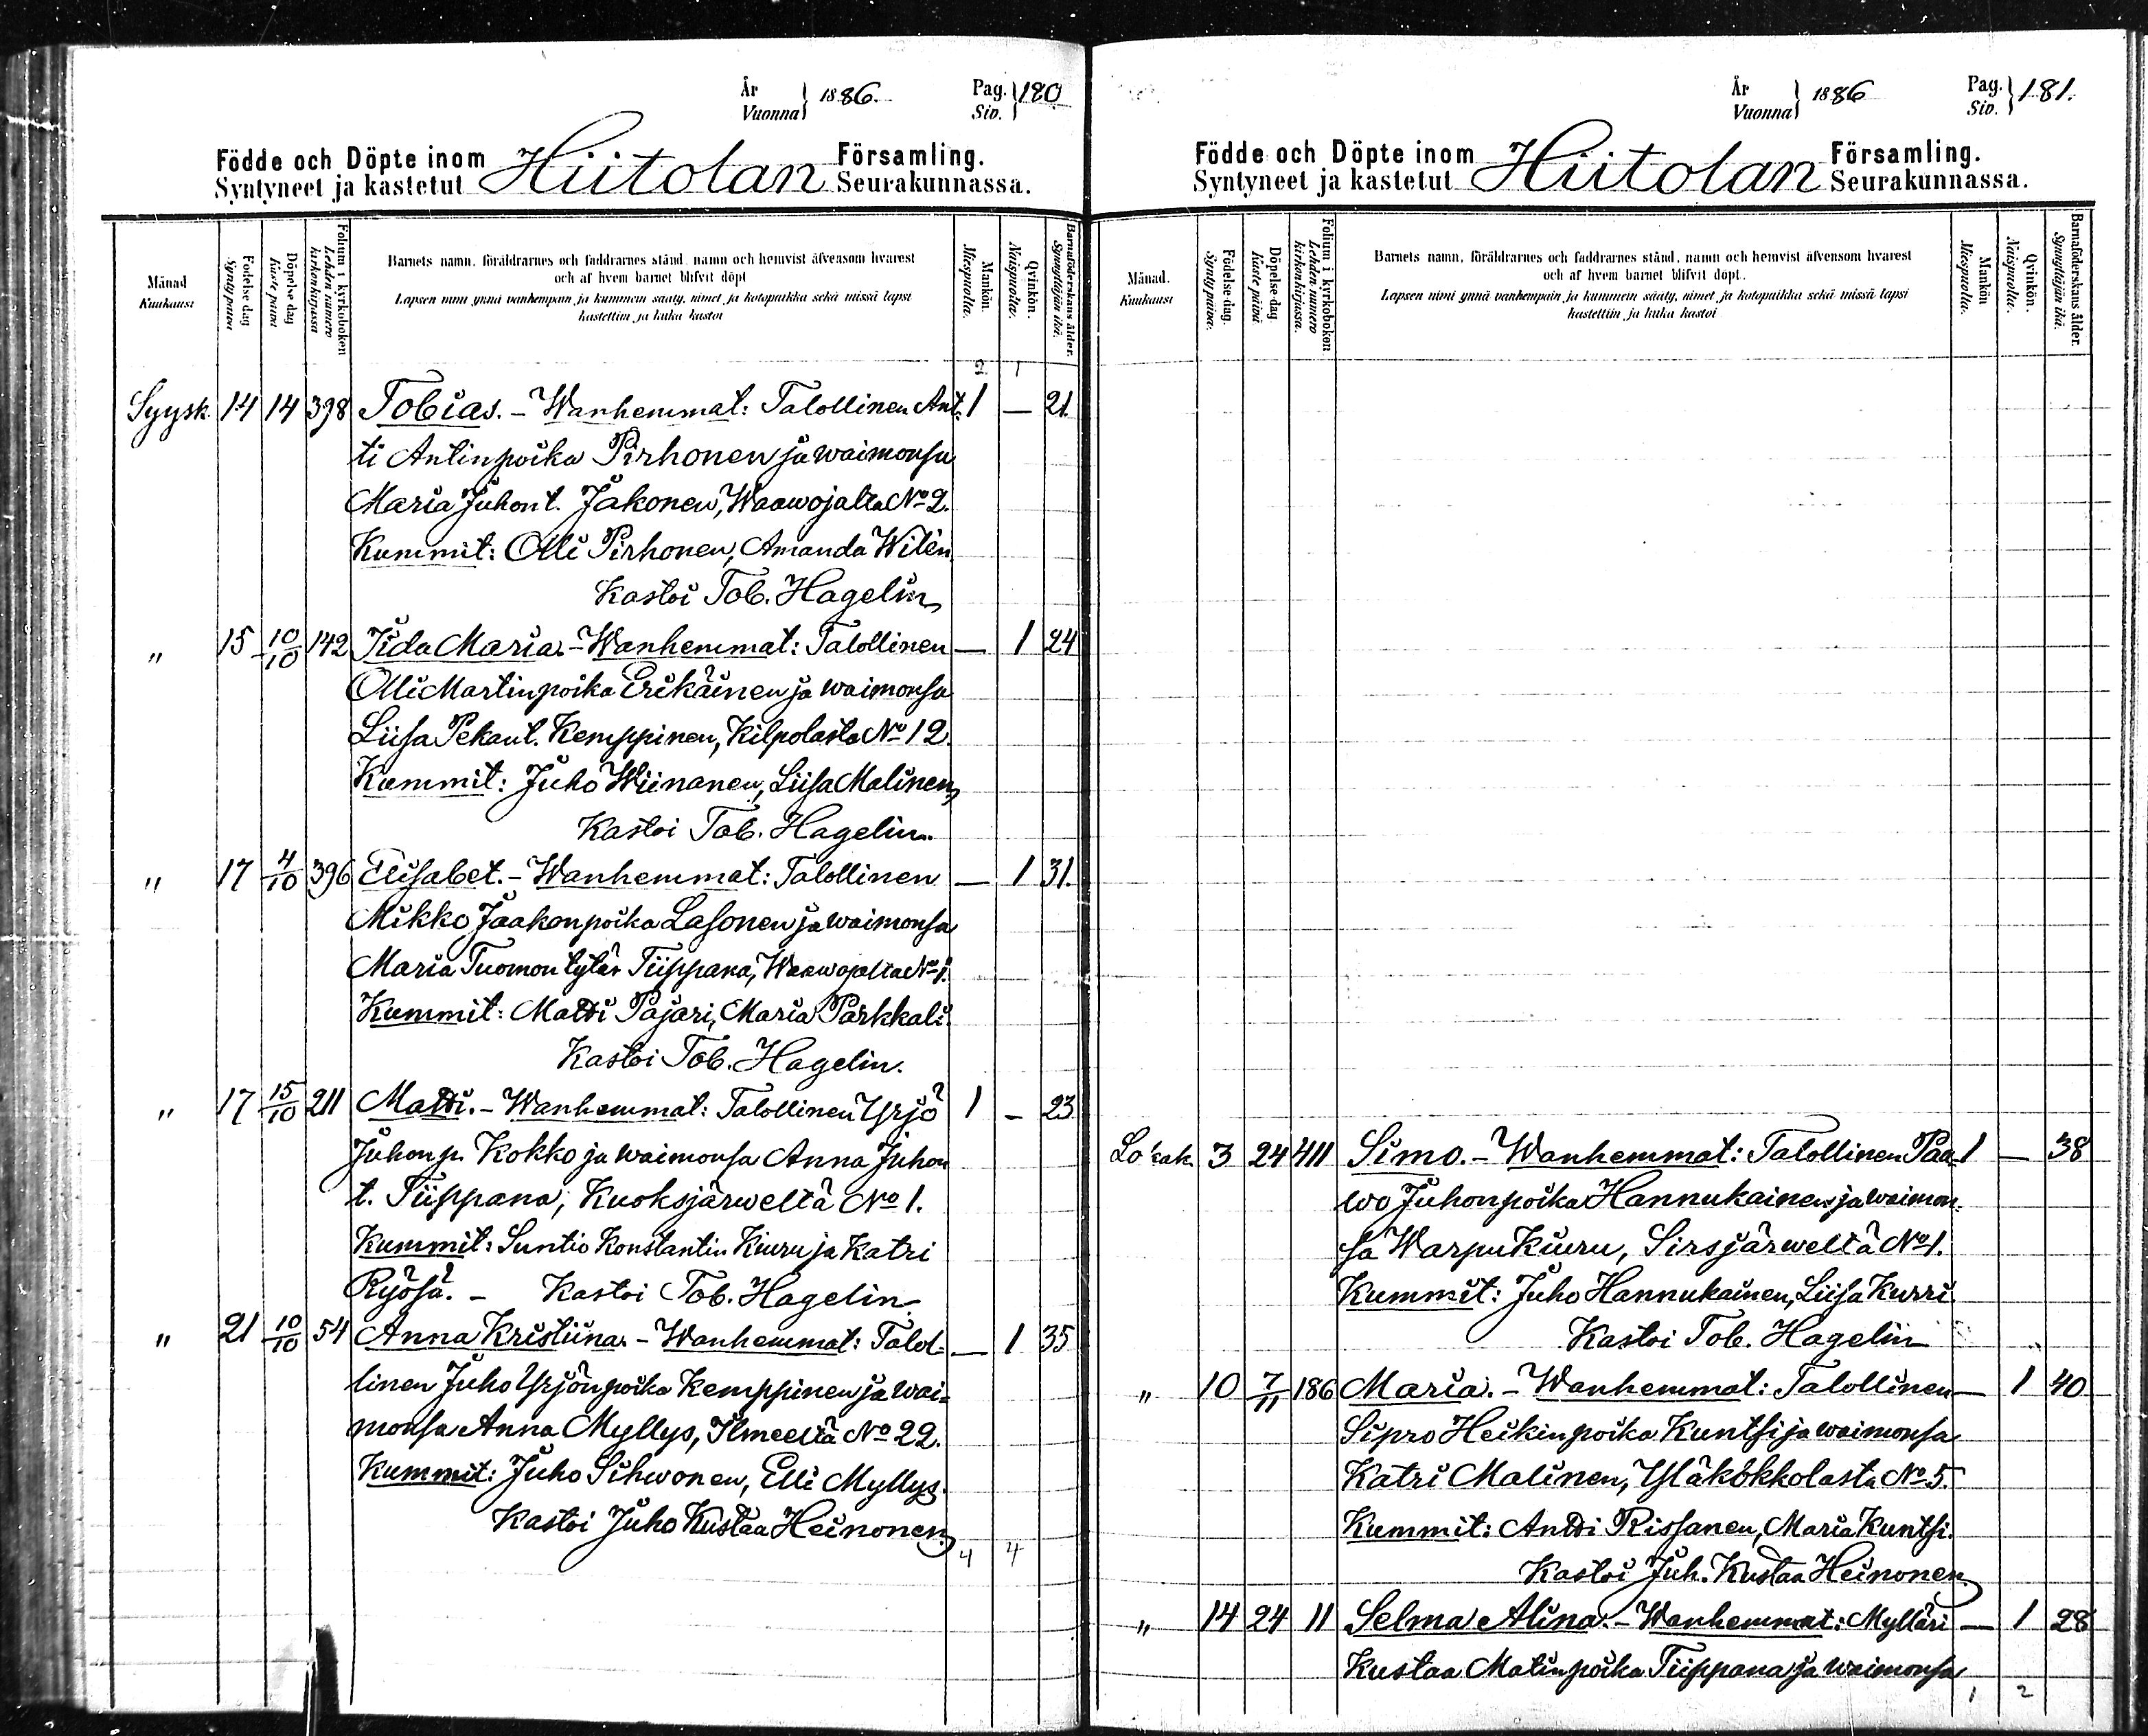 År
Vuonna } 1886.
Pag.
Siv. } 180
Födde och Döpte inom Hiitolan Församling.
Syntyneet ja kastetut Seurakunnassa.
Månad
Kuukausi
Födelse dag
Synty päivä
Döpelse dag
Kaste päivä
Folium i kyrkoboken
Lehden numero
kirkonkirjassa
Barnets namn, föräldrarnes och faddrarnes stånd, namn och hemvist äfvensom hvarest
och af hvem barnet blifvit döpt
Lapsen nimi ynnä vanhempain ja kummein sääty, nimet ja kotopaikka sekä missä lapsi
kastettiin ja kuka kastoi
Mankön.
Miespuolia.
Qvinkön.
Naispuolia.
Barnaföderskans ålder.
Synnyttäjän ikä.
2 1
Syysk. 14 14 398 Tobias. - Wanhemmat: Talollinen Ant- 1 — 21.
ti Antinpoika Pirhonen ja waimonsa
Maria Juhont. Jakonen, Waawojalta No 2.
Kummit: Olli Pirhonen, Amanda Witén
Kastoi Tob. Hagelin
" 15 10/10 142 Iida Maria. - Wanhemmat: Talollinen — 1 24
Olli Martinpoika Erikäinen ja waimonsa
Liisa Pekant. Kemppinen, Kilpolasta No 12.
Kummit: Juho Wiinanen, Liisa Malinen,
Kastoi Tob. Hagelin.
" 17 4/10 396 Elisabet. - Wanhemmat: Talollinen — 1 31.
Mikko Jaakonpoika Lasonen ja waimonsa
Maria Tuomontytär Tiippana, Waawojalta No 1.
Kummit: Matti Pajari, Maria Parkkali.
Kastoi Tob. Hagelin.
" 17 15/10 211 Matti. - Wanhemmat: Talollinen Yrjö 1 — 23
Juhonp. Kokko ja waimonsa Anna Juhon
t. Tiippana, Kuoksjärweltä No 1.
Kummit: Suntio Konstantin Kiuru ja Katri
Ryösä. - Kastoi Tob. Hagelin.
" 21 10/10 54 Anna Kristiina. - Wanhemmat: Talol- — 1 35
linen Juho Yrjönpoika Kemppinen ja wai-
monsa Anna Myllys, Ilmeeltä No 22.
Kummit: Juho Sihwonen, Elli Myllys.
Kastoi Juho Kustaa Heinonen.
4 4
År
Vuonna } 1886
Pag.
Siv. } 181.
Födde och Döpte inom Hiitolan Församling.
Syntyneet ja kastetut Seurakunnassa.
Månad.
Kuukausi
Födelse dag.
Synty päivä.
Döpelse dag
Kaste päivä
Folium i kyrkoboken
Lehden numero
kirkonkirjassa.
Barnets namn, föräldrarnes och faddrarnes stånd, namn och hemvist äfvensom hvarest
och af hvem barnet blifvit döpt.
Lapsen nimi ynnä vanhempain ja kummein sääty, nimet ja kotopaikka sekä missä lapsi
kastettiin ja kuka kastoi
Mankön
Miespuolia.
Qvinkön.
Naispuolia.
Barnaföderskans ålder.
Synnyttäjän ikä.
Lokak. 3 24 411 Simo. - Wanhemmat: Talollinen Paa- 1 — 38
wo Juhonpoika Hannukainen ja waimon-
sa Warpu Kiuru, Sirsjärweltä No 1.
Kummit: Juho Hannukainen, Liisa Kurri.
Kastoi Tob. Hagelin
" 10 7/11 186 Maria. - Wanhemmat: Talollinen — 1 40
Sipro Heikinpoika Kuntsi ja waimonsa
Katri Malinen, Yläkokkolasta No 5.
Kummit: Antti Rissanen, Maria Kuntsi.
Kastoi Juh. Kustaa Heinonen
" 14 24 11 Selma Alina. - Wanhemmat: Mylläri — 1 28
Kustaa Matinpoika Tiippana ja waimonsa
1 2